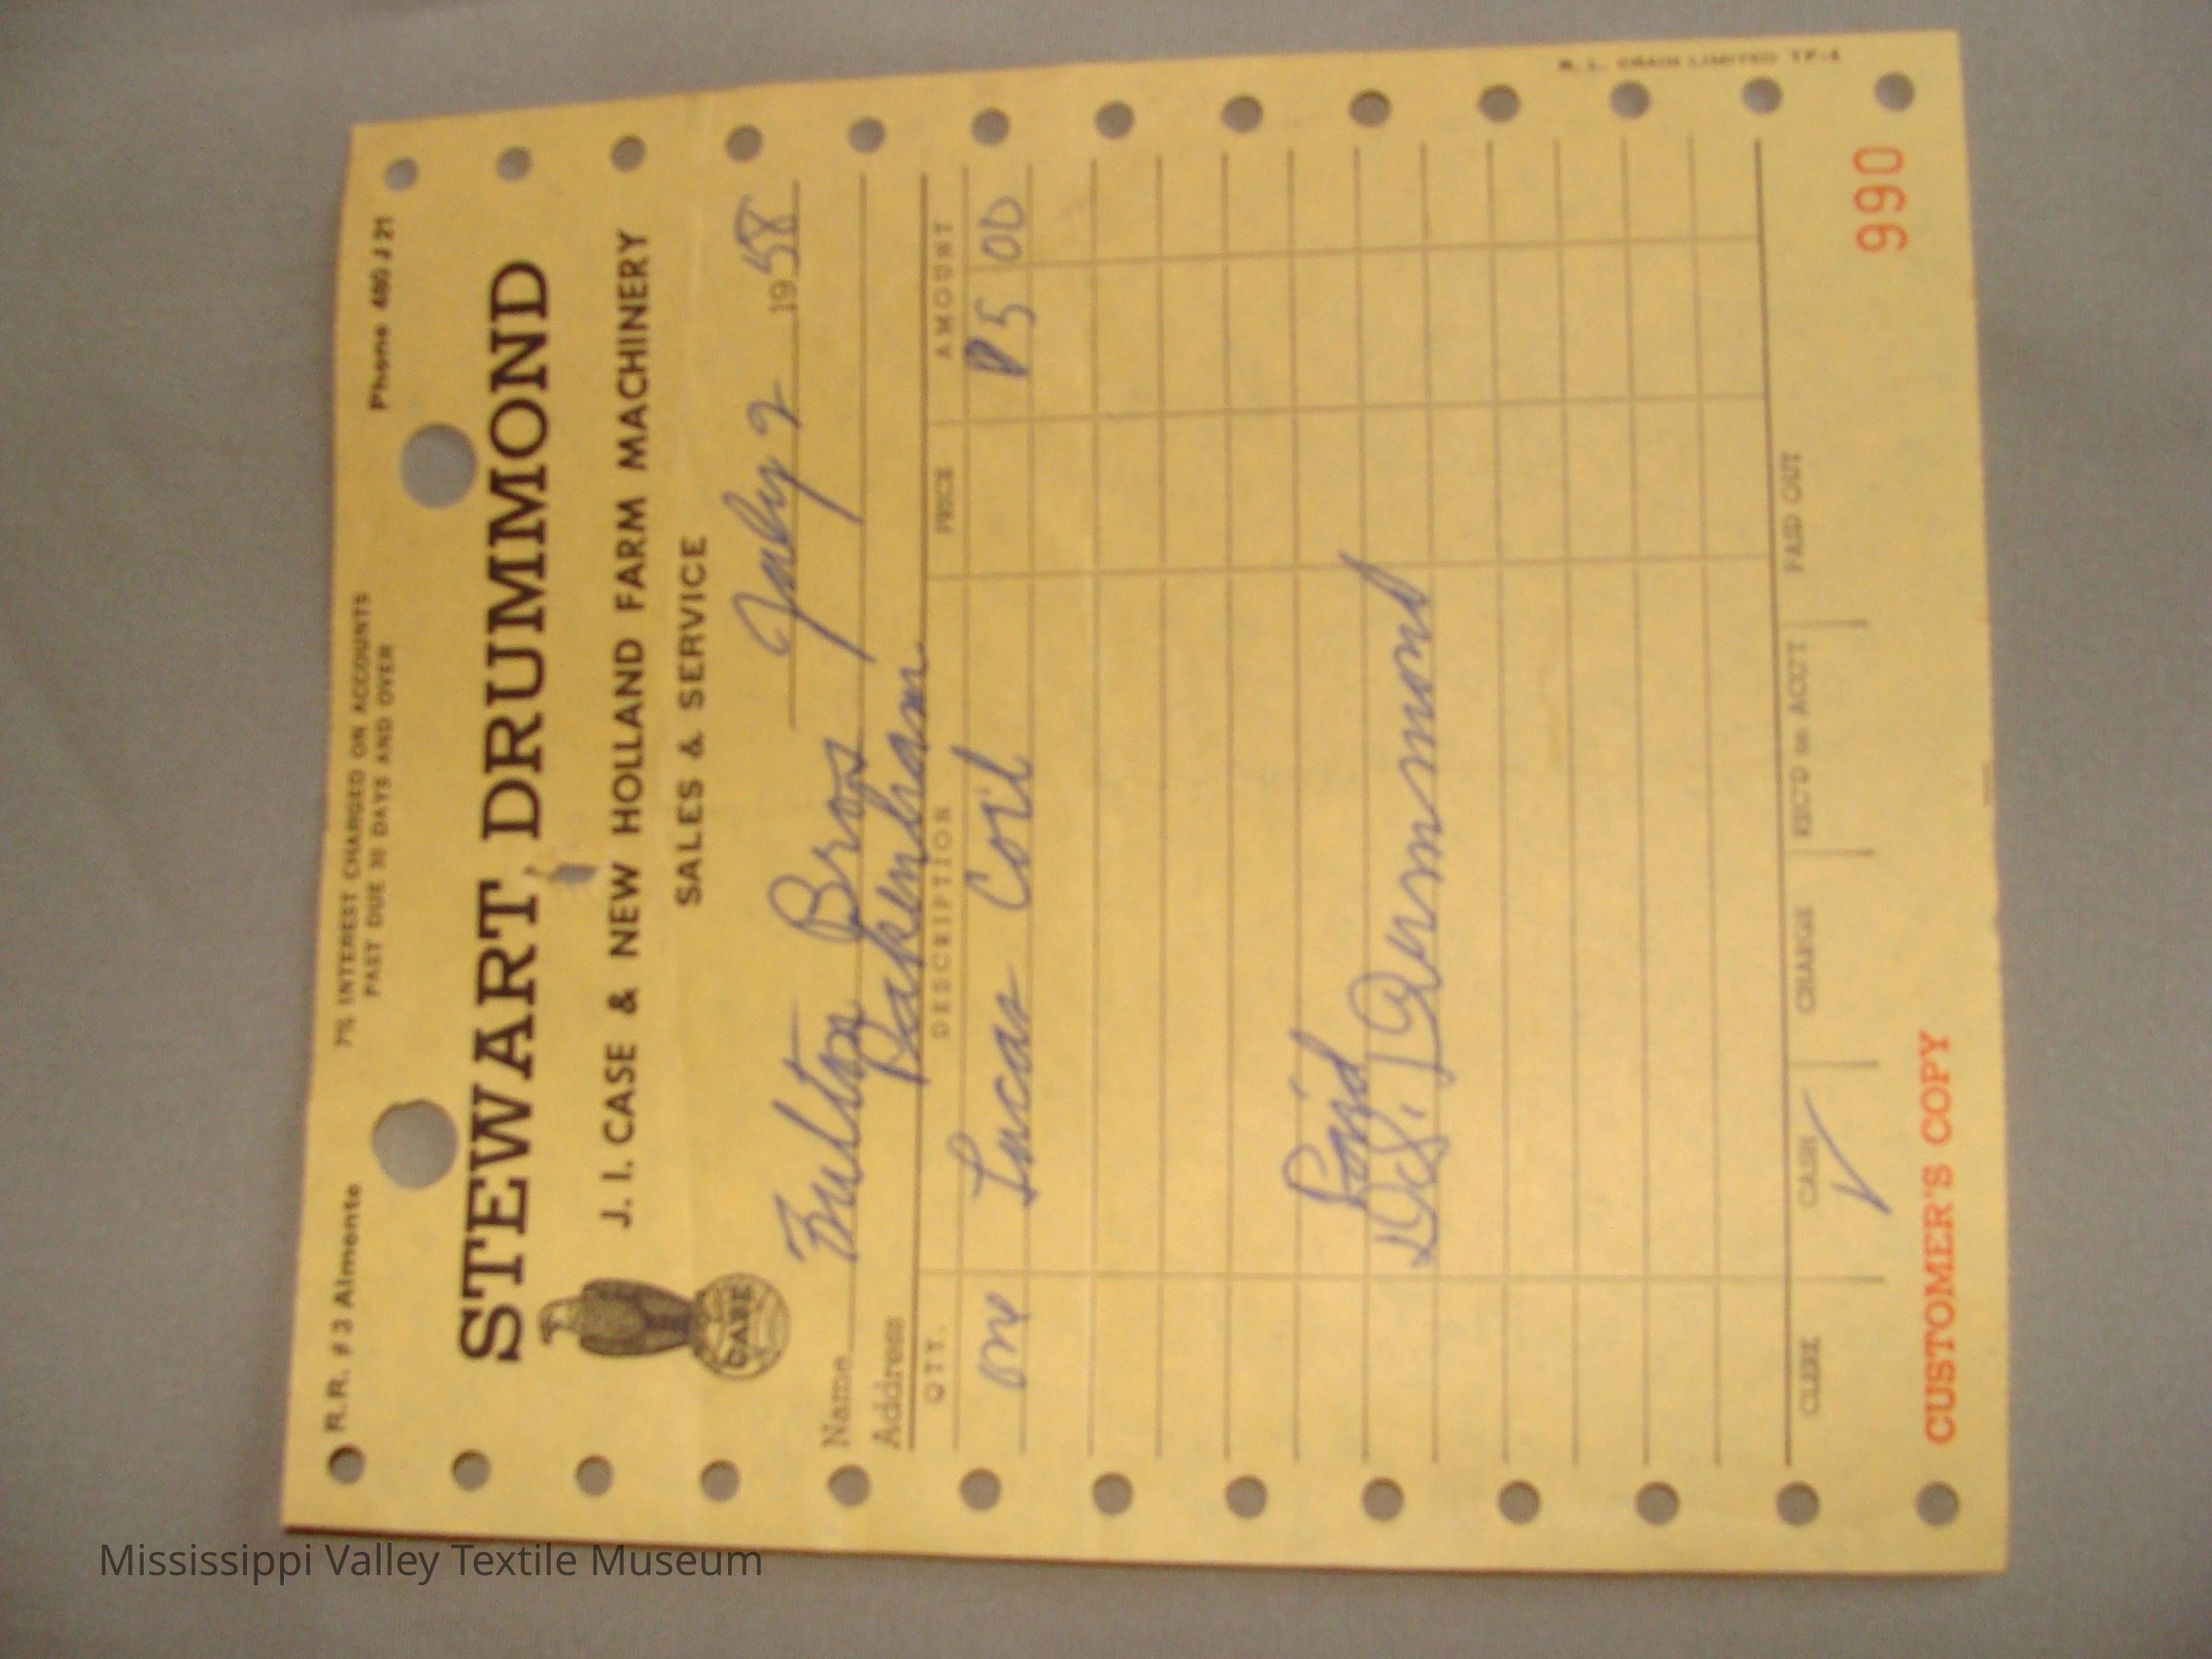 R.R. #3 Almonte Phone 480 J 21
7% INTEREST CHARGED ON ACCOUNTS
PAST DUE 30 DAYS AND OVER
STEWART DRUMMOND
J. I. CASE & NEW HOLLAND FARM MACHINERY
SALES & SERVICE
CASE
July 2 1958
Name Fulton Bros
Address Pakenham
QTY. DESCRIPTION PRICE AMOUNT
one Lucas Coil 5 00
Paid
Drummond
CLERK CASH CHARGE REC'D on ACC'T PAID OUT
✓
CUSTOMER'S COPY 990
R. L. CRAIN LIMITED TF-4
Mississippi Valley Textile Museum